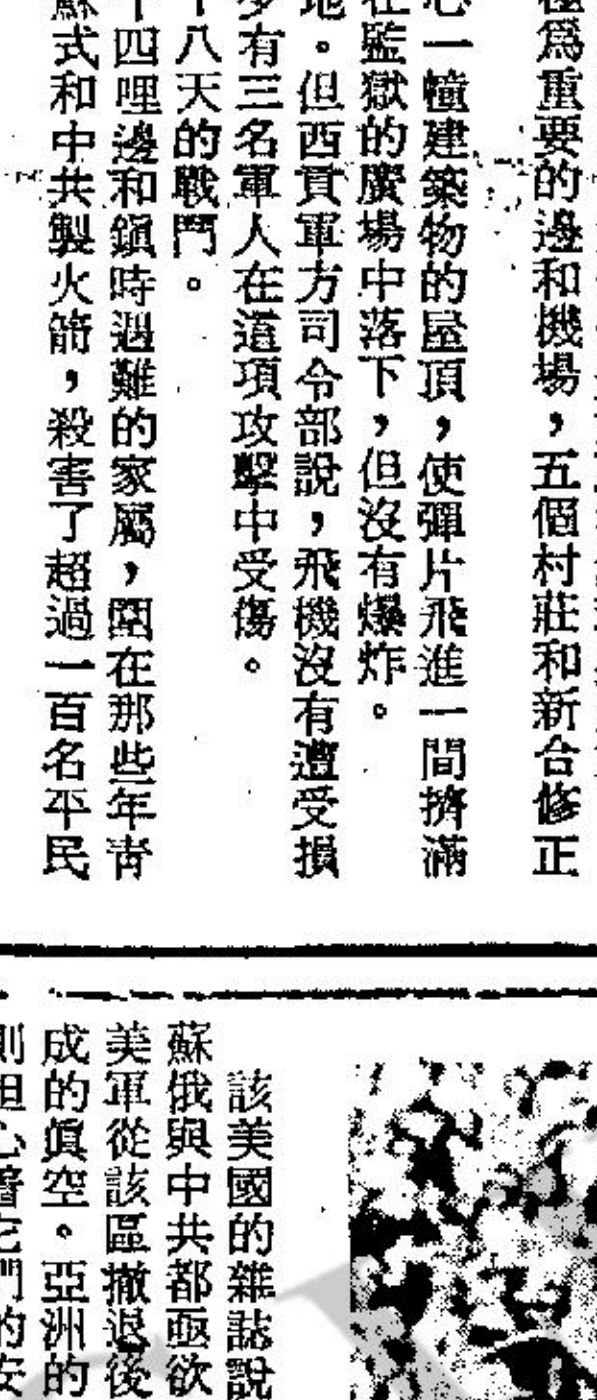 極為重要的邊和機場，五個村莊和新合修正
心一幢建築物的屋頂，使彈片飛進一間擠滿
在監獄的廣場中落下，但沒有爆炸。
地。但西貢軍方司令部說，飛機沒有遭受損
有三名軍人在這項攻擊中受傷。
十八天的戰鬥。
十四哩邊和鎮時遇難的家屬，圍在那些年青
蘇式和中共製火箭，殺害了超過一百名平民
該美國的雜誌說
蘇俄與中共都亟欲
美軍從該區撤退後
成的眞空。亞洲的
則担心著它們的安